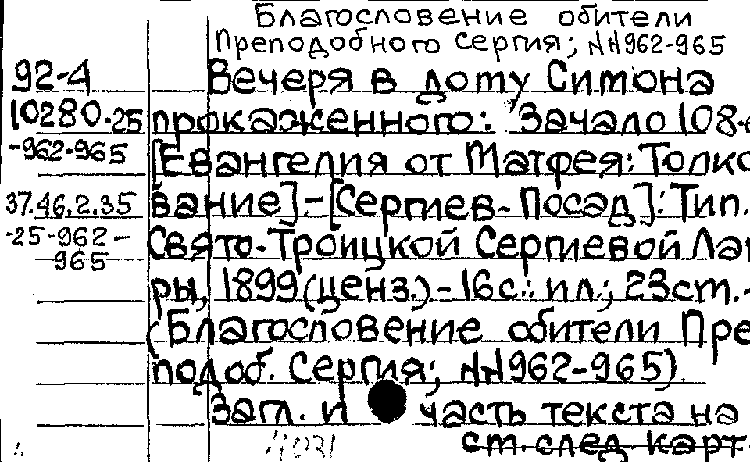 Благословение обители
Преподобного Сергия; NN962-965
92-4 Вечеря в дому Симона
10280-25 прокаженного: Зачало 108-
-962-965 [Евангелия от Матфея: Толко
37.46.2.35 вание].-[Сергиев-Посад]: Тип.
-25-962- Свято-Троицкой Сергиевой Лав
965
ры, 1899(ценз.)-16с.: ил.; 23см.-
(Благословение обители Пре
подоб. Сергия; NN962-965).
Загл. и часть текста на
см. след. карт